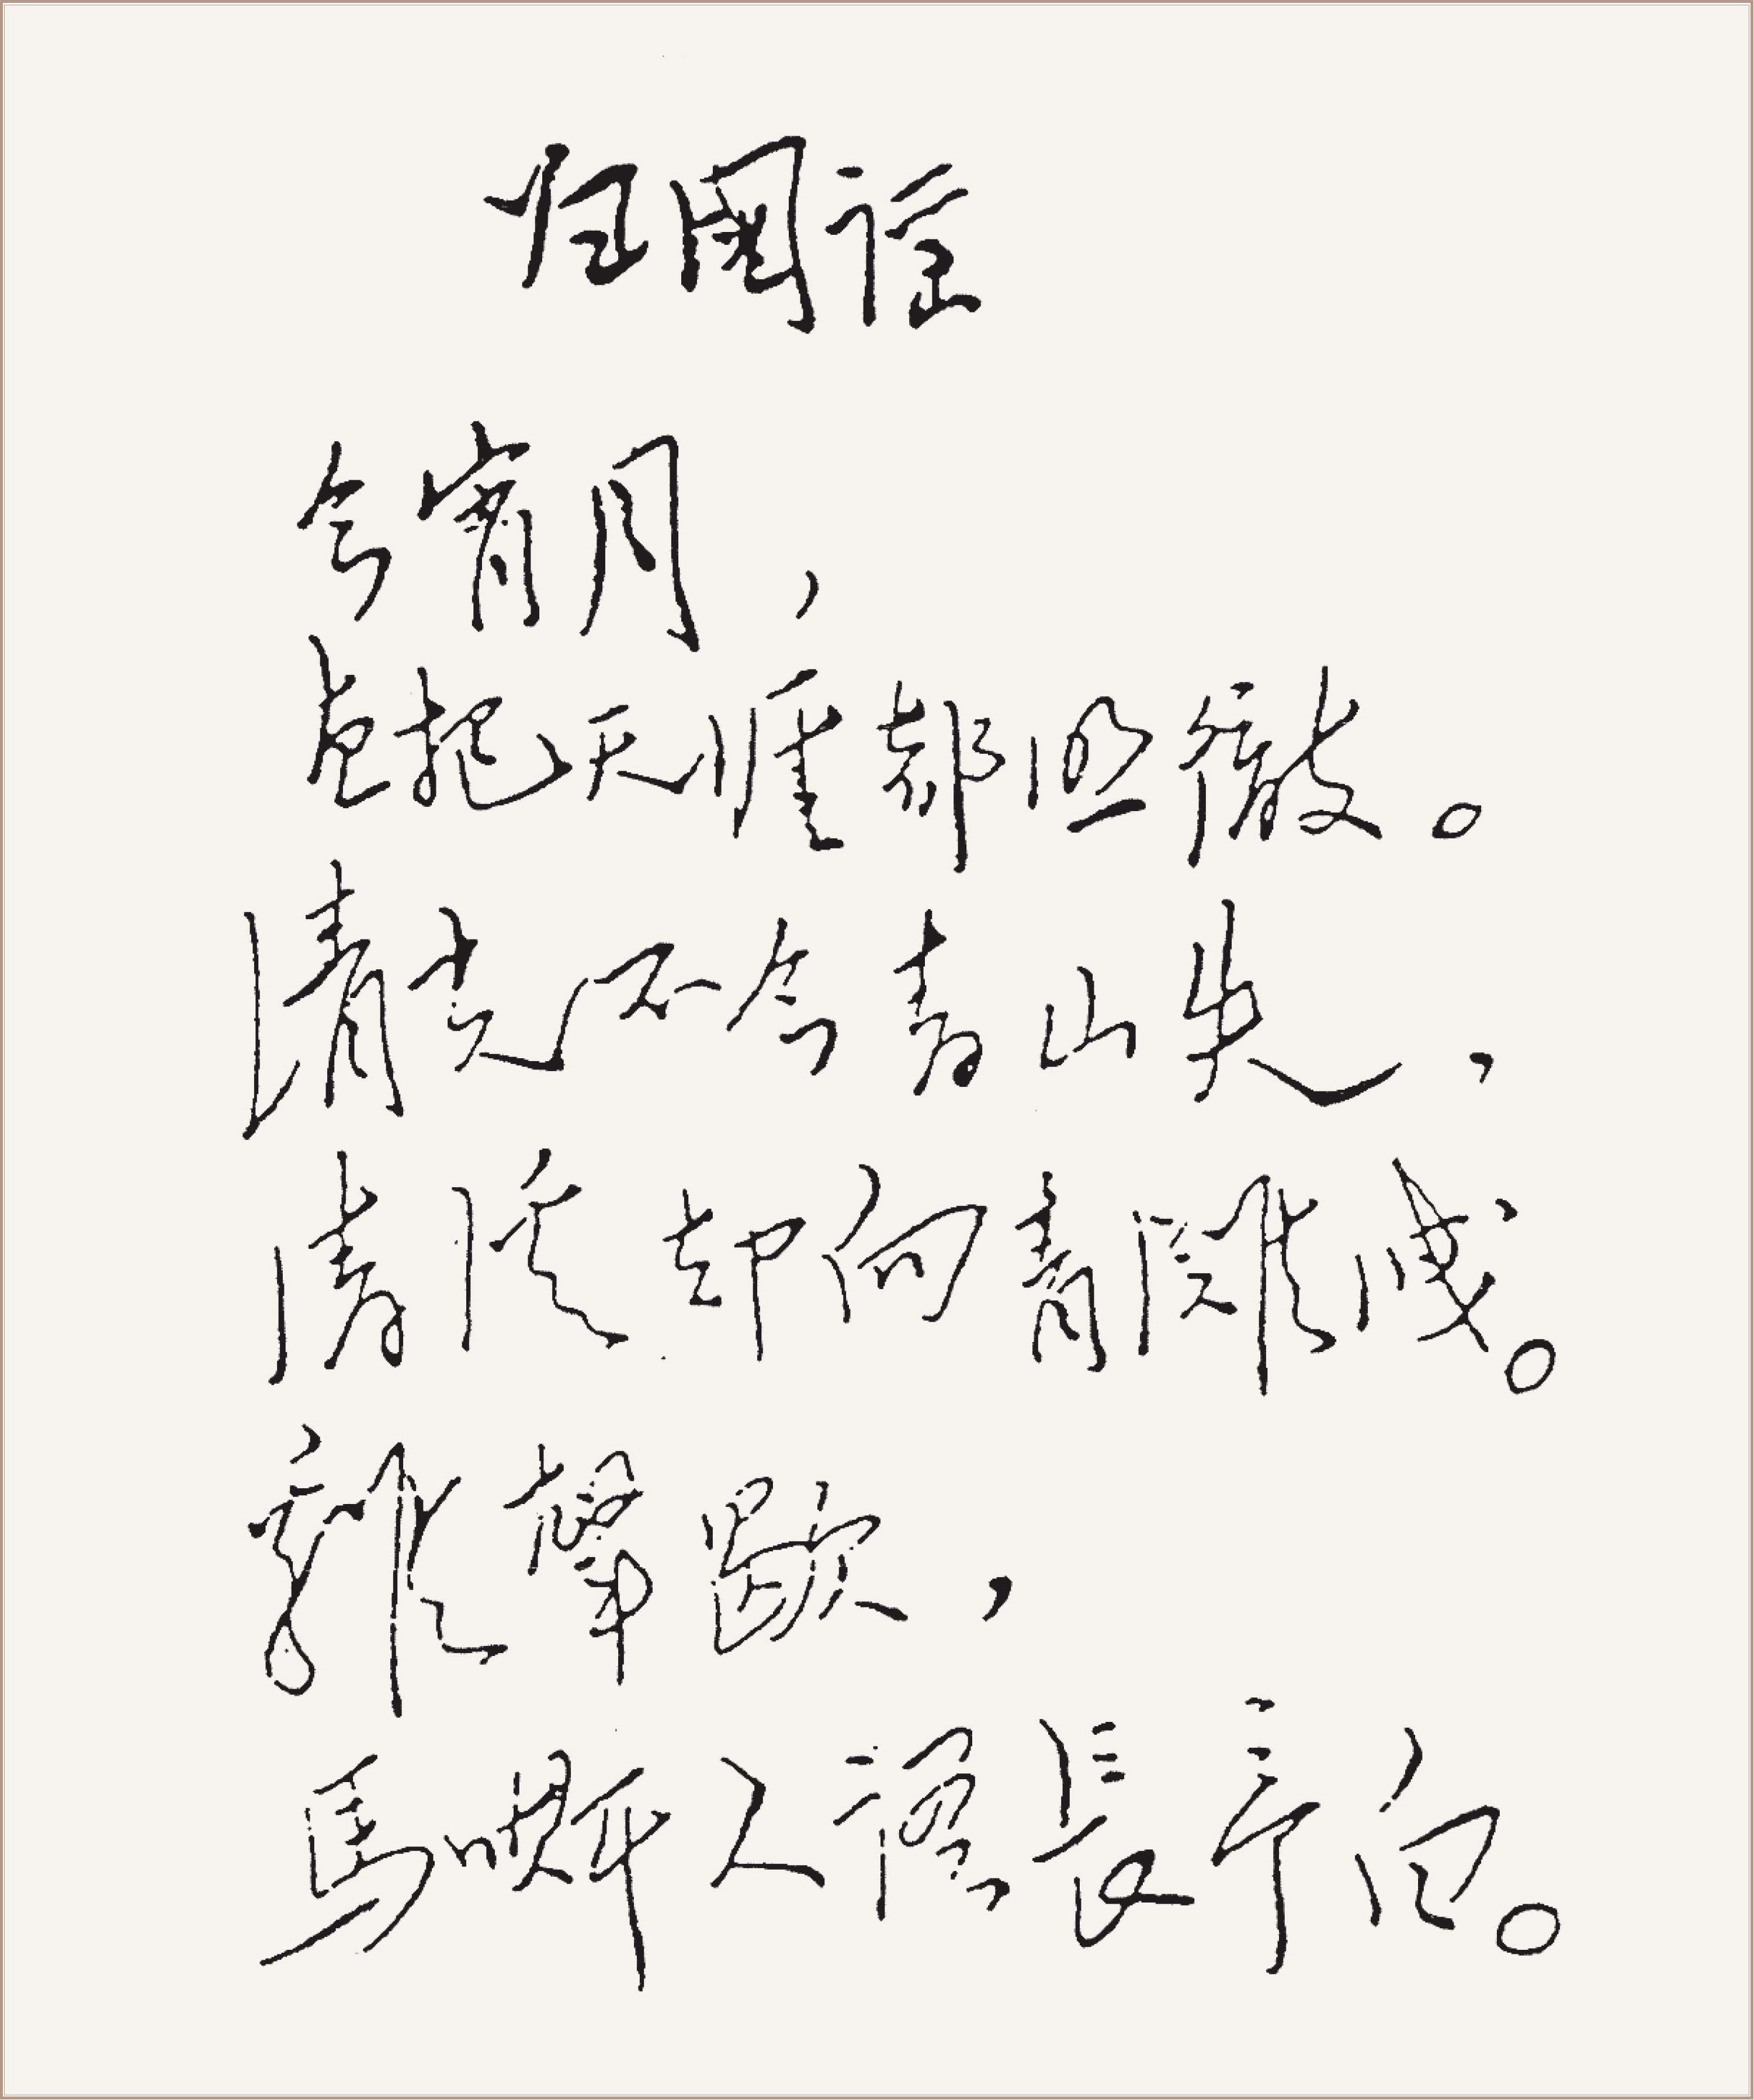 归國謠
今宵月，
直把天涯都照徹。
清光不令青山失，
清溪却向青灘洩。
雞聲歇，
馬嘶人語長亭白。